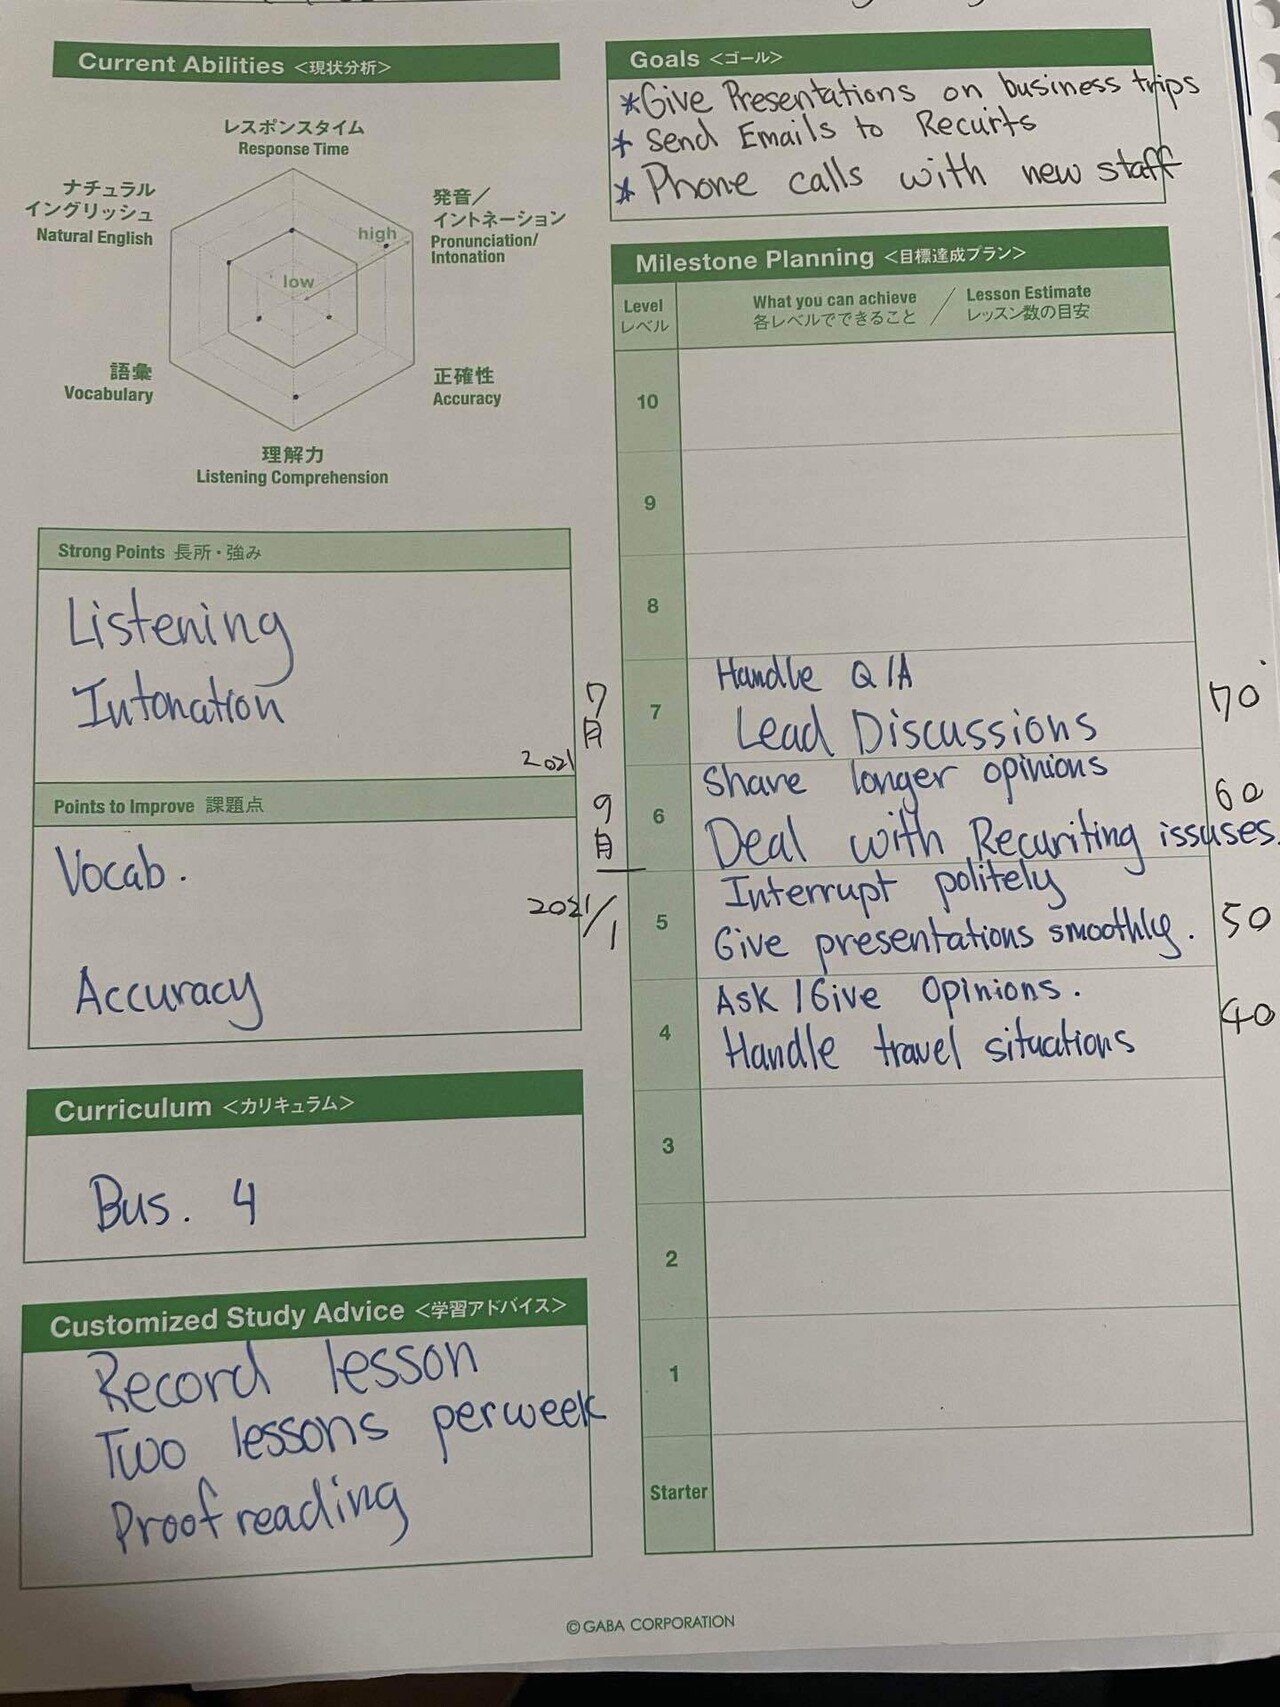 Current Abilities <現状分析>
レスポンスタイム
Response Time
ナチュラル
イングリッシュ
Natural English
発音／
イントネーション
Pronunciation/
Intonation
high
low
語彙
Vocabulary
正確性
Accuracy
理解力
Listening Comprehension
Strong Points 長所・強み
Listening
Intonation
Points to Improve 課題点
Vocab.
Accuracy
Curriculum <カリキュラム>
Bus. 4
Customized Study Advice <学習アドバイス>
Record lesson
Two lessons per week
Proof reading
Goals <ゴール>
*Give Presentations on business trips
* Send Emails to Recurts
* Phone calls with new staff
Milestone Planning <目標達成プラン>
Level
レベル
What you can achieve / Lesson Estimate
各レベルでできること / レッスン数の目安
10
9
8
7月
2021
7
Handle Q/A
Lead Discussions
70
9月
6
Share longer opinions
Deal with Recuriting issuses.
60
2021/1
5
Interrupt politely
Give presentations smoothly.
50
4
Ask /Give Opinions.
Handle travel situations
40
3
2
1
Starter
©GABA CORPORATION